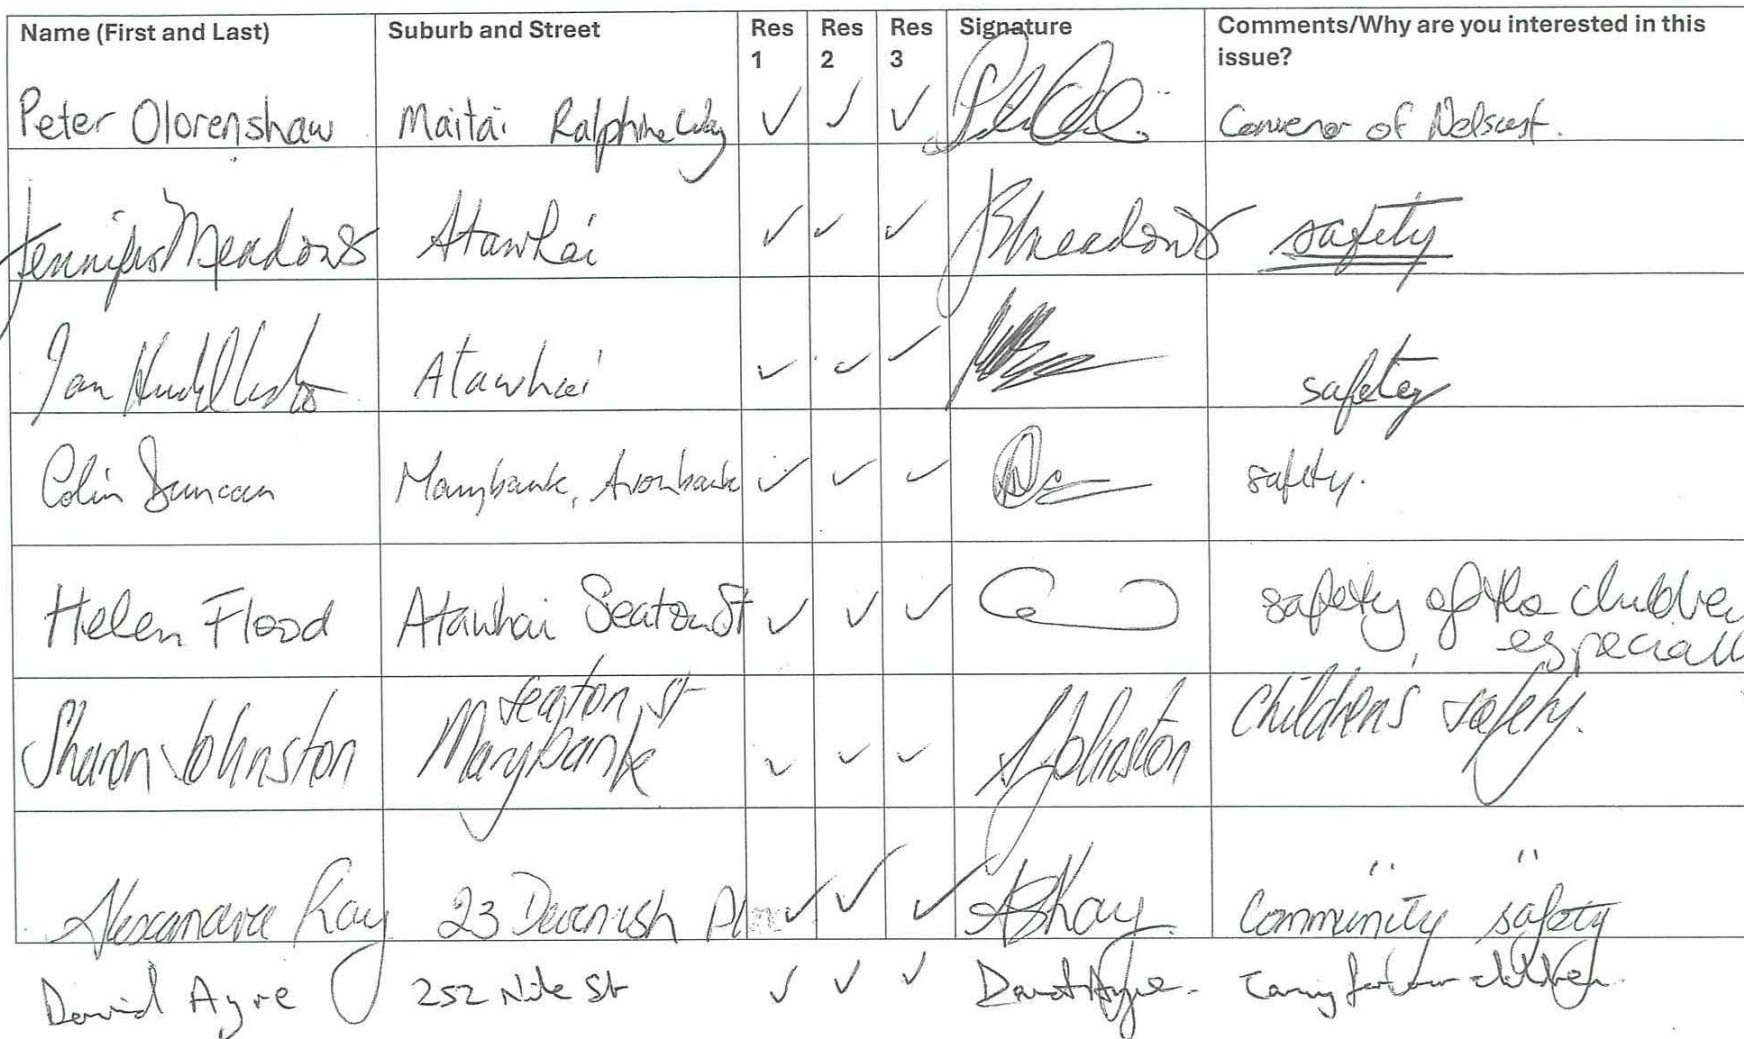 Name (First and Last) Suburb and Street Res 1 Res 2 Res 3 Signature Comments/Why are you interested in this issue?
Peter Olorenshaw Maitai Ralphine Way ✓ ✓ ✓ Convenor of Nelsust.
Jennifer Meadows Atawhai ✓ ✓ ✓ JMeadows safety
Ian Atawhai ✓ ✓ ✓ safety
Colin Duncan Marybank, Avonbank ✓ ✓ ✓ safety.
Helen Flood Atawhai Seaton St ✓ ✓ ✓ safety of the children especiall
Sharon Johnston Seaton St Marybank ✓ ✓ ✓ SJohnston Children's safety.
23 Devenish ✓ ✓ ✓ " "
Community safety
David Ayre 252 Nile St ✓ ✓ ✓ David Ayre. Caring for our children.